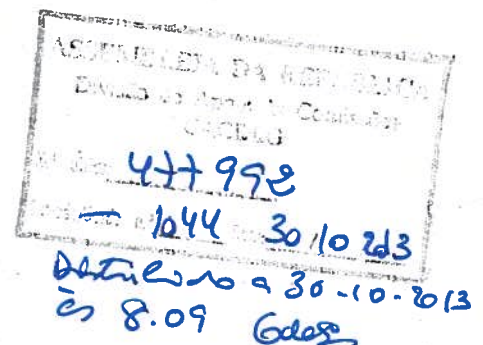 ASSEMBLEIA DA REPÚBLICA
Divisão de Apoio às Comissões
477992
— 1044 30/10/2013
Distribuído a 30-10-2013
às 8.09